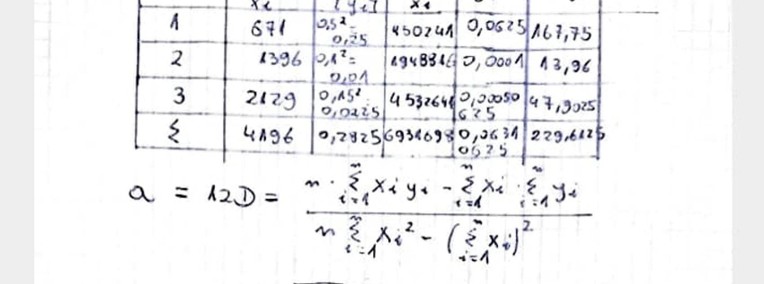 xi [yi] xi
1 671 0,5²= 0,25 450241 0,0625 167,75
2 1396 0,1²= 0,01 1948816 0,0001 13,96
3 2129 0,15² 0,0225 4532641 0,00050625 47,9025
Σ 4196 0,2825 6931698 0,06310625 229,6125
a = 12D = n · Σ xi yi - Σ xi · Σ yi
n Σ xi² - (Σ xi)²